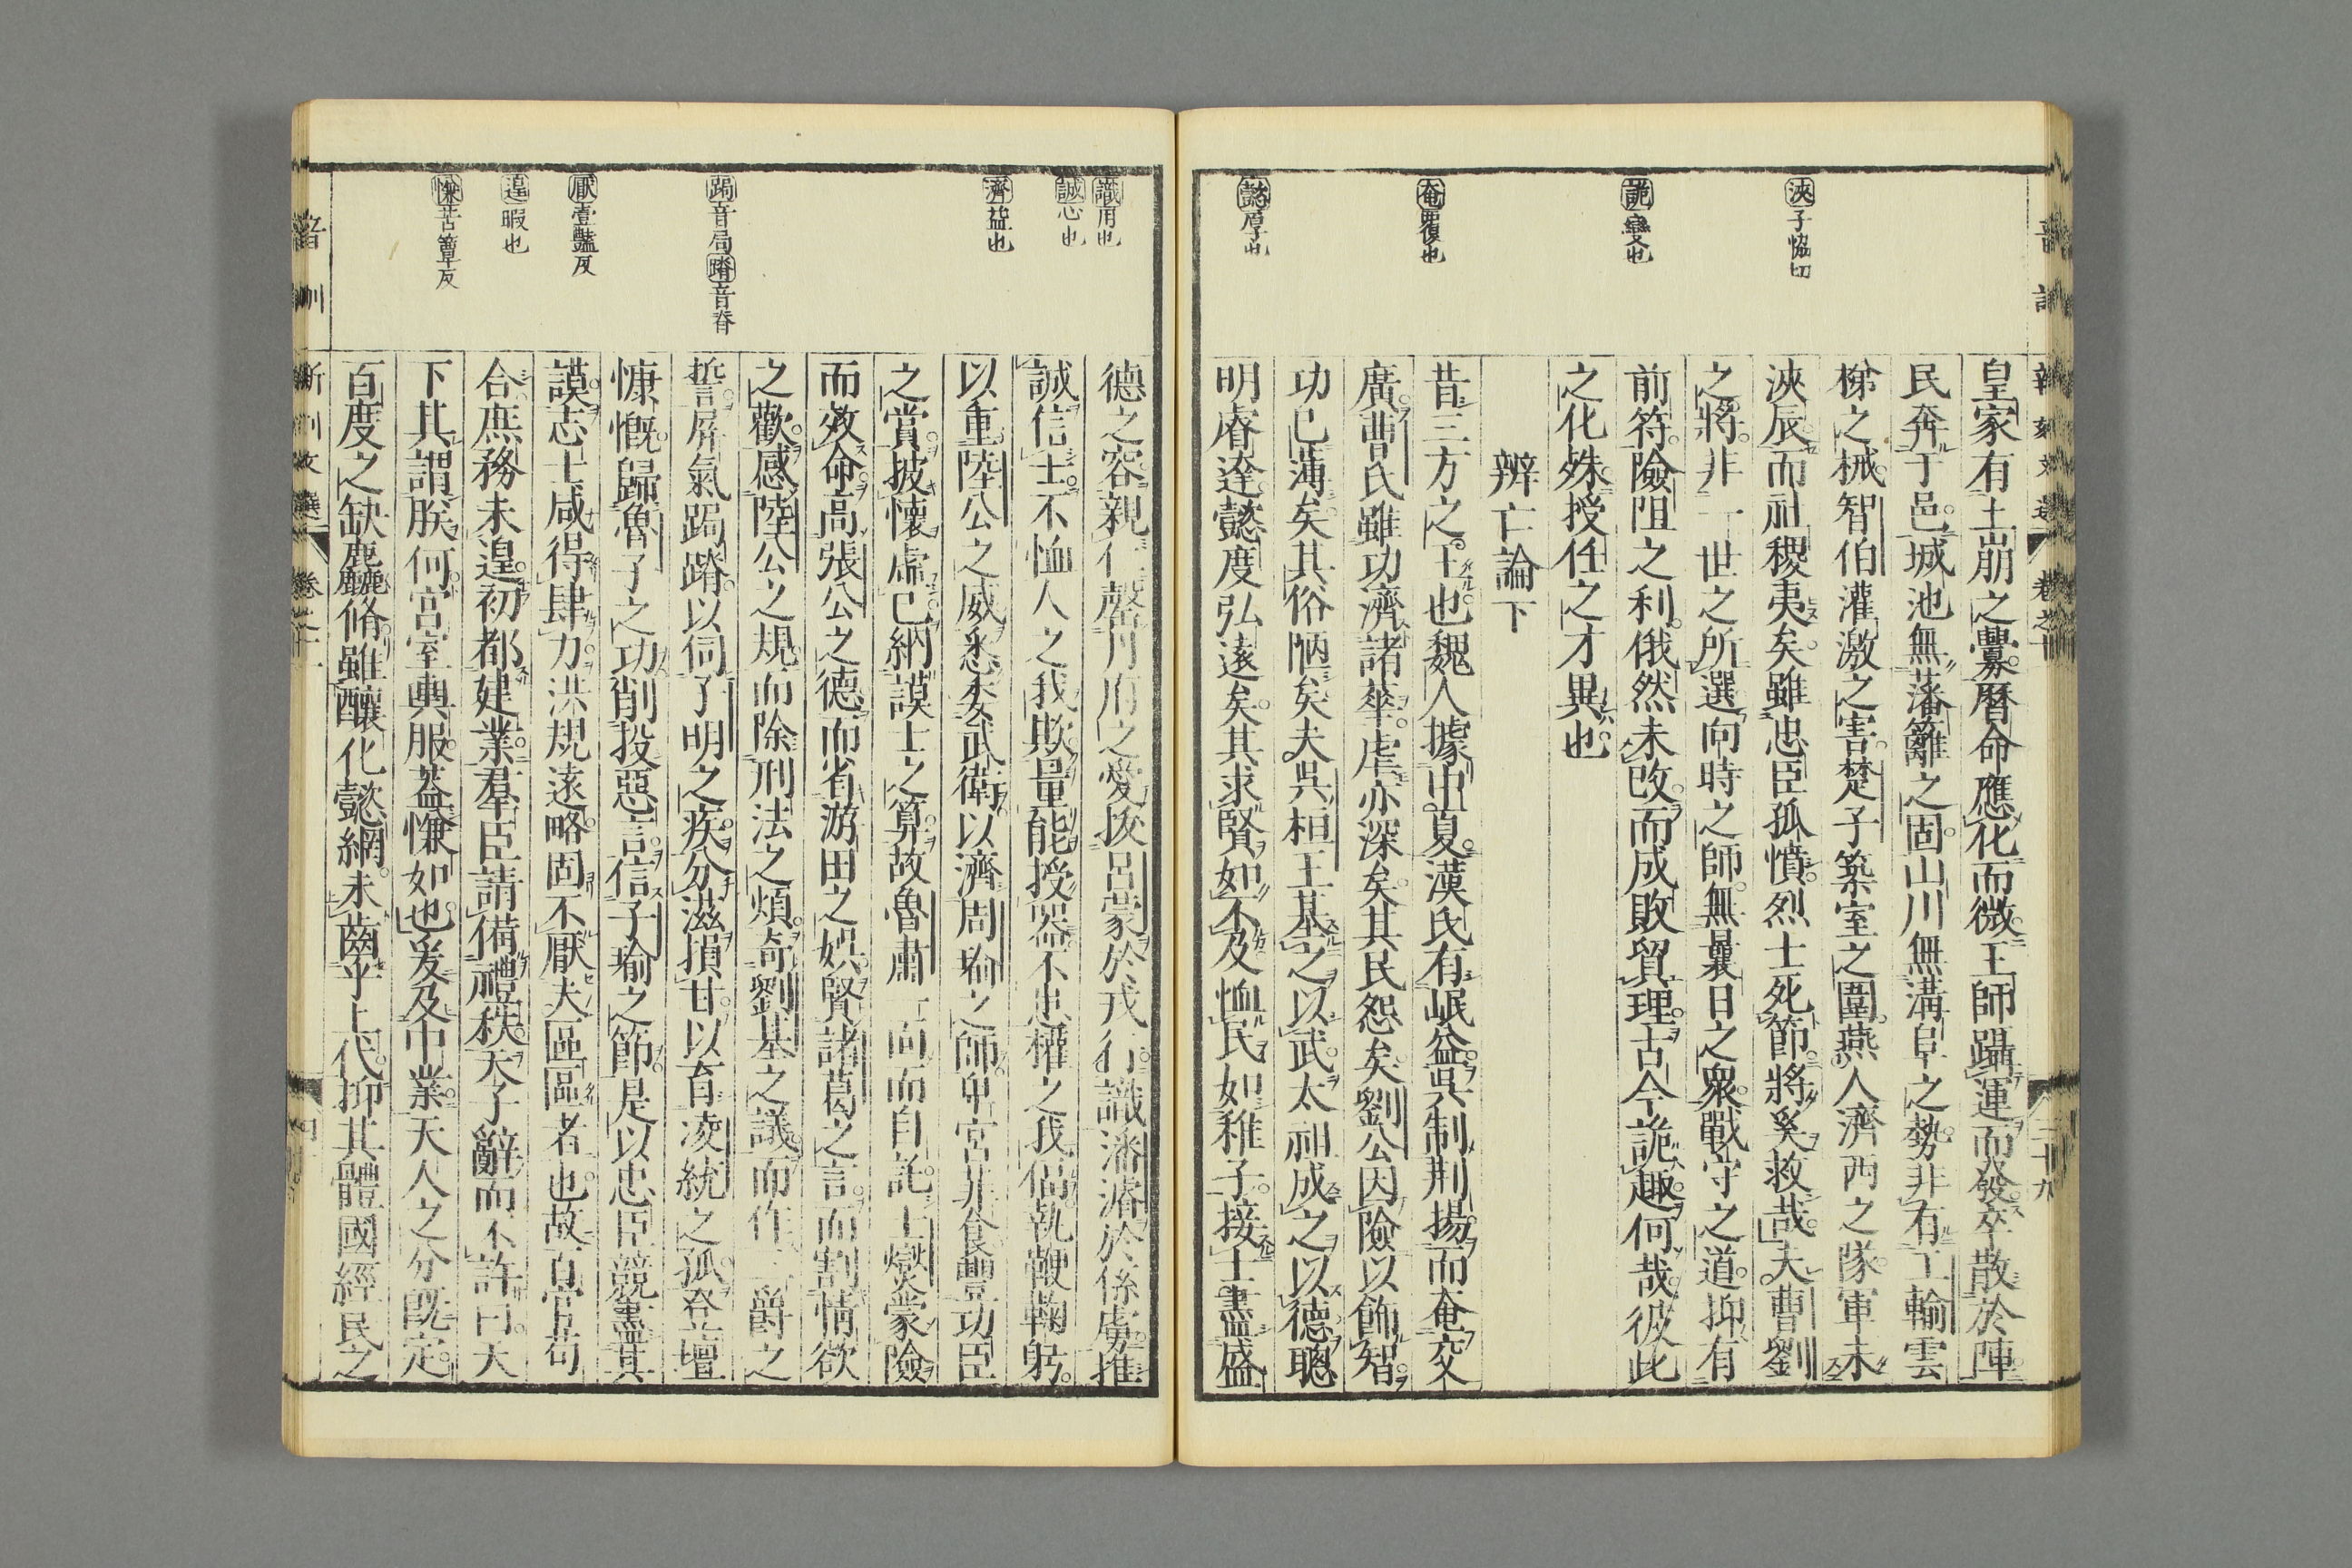 浹子協切
詭變也
奄覆也
懿厚也
皇家有土崩之釁曆命應化而微王師躡運而發卒散於陣
民奔于邑城池無藩籬之固山川無溝阜之勢非有工輸雲
梯之械智伯灌激之害楚子築室之圍燕人濟西之隊軍未
浹辰而社稷夷矣雖忠臣孤憤烈士死節將奚救哉夫曹劉
之將非一世之所選向時之師無曩日之衆戰守之道抑有
前符險阻之利俄然未改而成敗貿理古今詭趣何哉彼此
之化殊授任之才異也
辨亡論下
昔三方之王也魏人據中夏漢氏有岷益吳制荆揚而奄交
廣曹氏雖功濟諸華虐亦深矣其民怨矣劉公因險以飾智
功已薄矣其俗陋矣夫吳桓王基之以武太祖成之以德聰
明睿達懿度弘遠矣其求賢如不及恤民如稚子接士盡盛
識用也
誠心也
濟益也
跼音局蹐音脊
厭壹豔反
遑暇也
慊苦簟反
德之容親仁罄丹府之愛拔呂蒙於戎行識潘濬於係虜推
誠信士不恤人之我欺量能授器不患權之我偪執鞭鞠躬
以重陸公之威悉委武衛以濟周瑜之師卑宮菲食豐功臣
之賞披懷虛己納謨士之算故魯肅一面而自託士燮蒙險
而效命高張公之德而省游田之娛賢諸葛之言而割情欲
之歡感陸公之規而除刑法之煩奇劉基之議而作三爵之
誓屏氣跼蹐以伺子明之疾分滋損甘以育凌統之孤登壇
慷慨歸魯子之功削投惡言信子瑜之節是以忠臣競盡其
謨志士咸得肆力洪規遠略固不厭夫區區者也故百官苟
合庶務未遑初都建業羣臣請備禮秩天子辭而不許曰天
下其謂朕何宮室輿服蓋慊如也爰及中業天人之分旣定
百度之缺麤脩雖醲化懿綱未齒乎上代抑其體國經民之